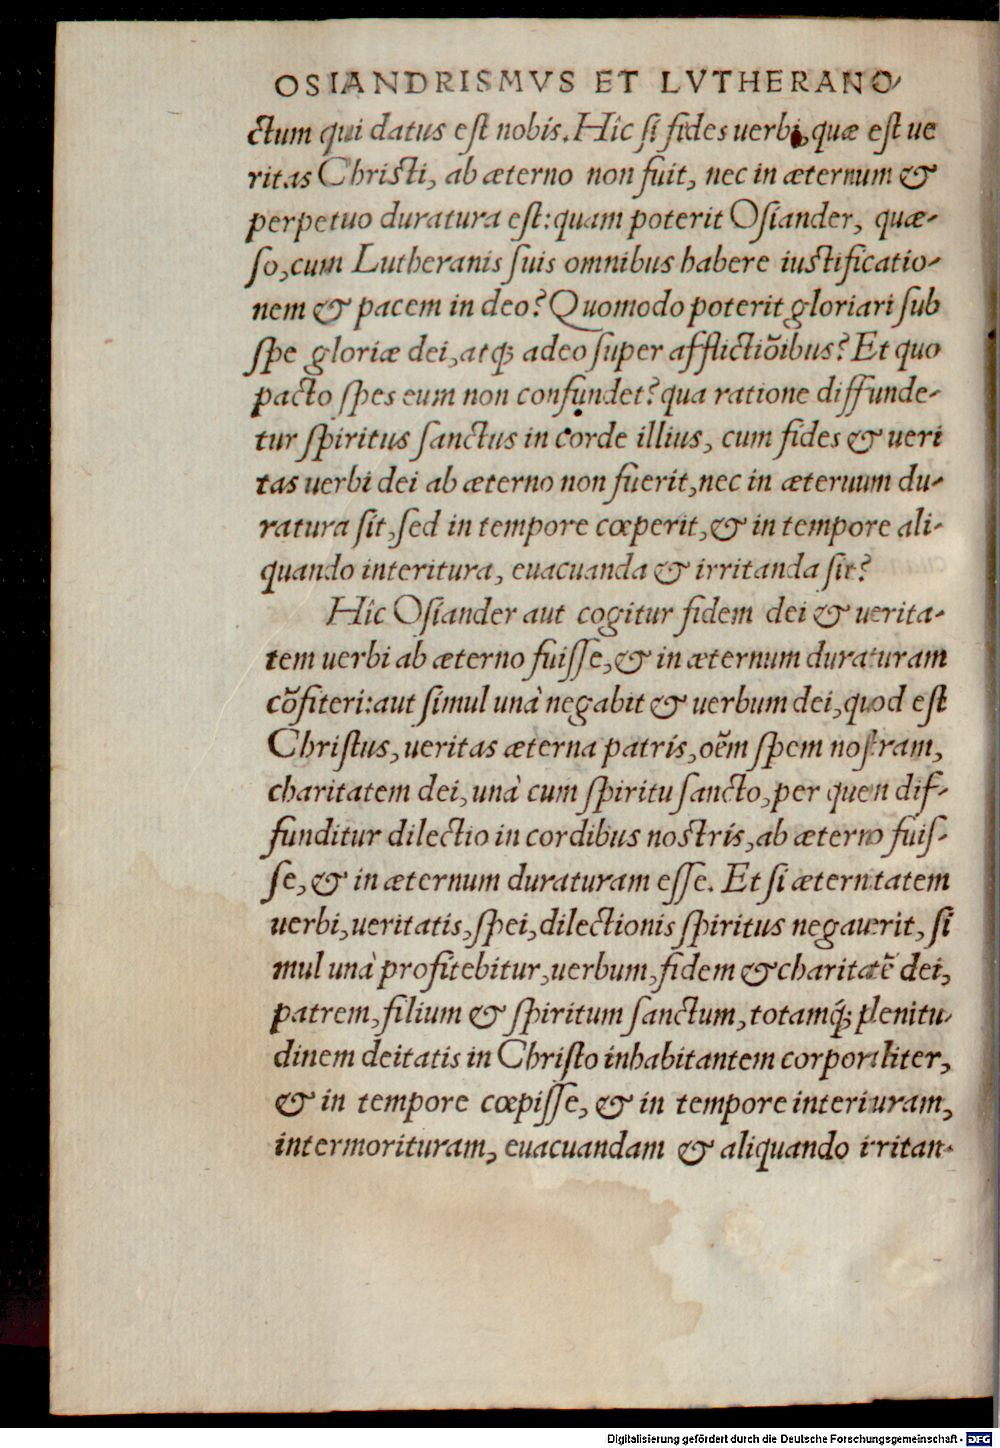 OSIANDRISMVS ET LVTHERANO-
ctum qui datus est nobis. Hîc si fides uerbi, quæ est ue
ritas Christi, ab æterno non fuit, nec in æternum &
perpetuo duratura est: quam poterit Osiander, quæ-
so, cum Lutheranis suis omnibus habere iustificatio-
nem & pacem in deo? Quomodo poterit gloriari sub
spe gloriæ dei, atq; adeo super afflictiõibus? Et quo
pacto spes eum non confundet? qua ratione diffunde-
tur spiritus sanctus in corde illius, cum fides & ueri
tas uerbi dei ab æterno non fuerit, nec in æteruum du-
ratura sit, sed in tempore cœperit, & in tempore ali-
quando interitura, euacuanda & irritanda sit?
Hîc Osiander aut cogitur fidem dei & uerita-
tem uerbi ab æterno fuisse, & in æternum duraturam
cõfiteri: aut simul unà negabit & uerbum dei, quod est
Christus, ueritas æterna patris, oẽm spem nostram,
charitatem dei, unà cum spiritu sancto, per quen dif-
funditur dilectio in cordibus nostris, ab æterno fuis-
se, & in æternum duraturam esse. Et si æterntatem
uerbi, ueritatis, spei, dilectionis spiritus negauerit, si
mul unà profitebitur, uerbum, fidem & charitatẽ dei,
patrem, filium & spiritum sanctum, totamq́; plenitu-
dinem deitatis in Christo inhabitantem corporaliter,
& in tempore cœpisse, & in tempore interituram,
intermorituram, euacuandam & aliquando irritan-
Digitalisierung gefördert durch die Deutsche Forschungsgemeinschaft - DFG